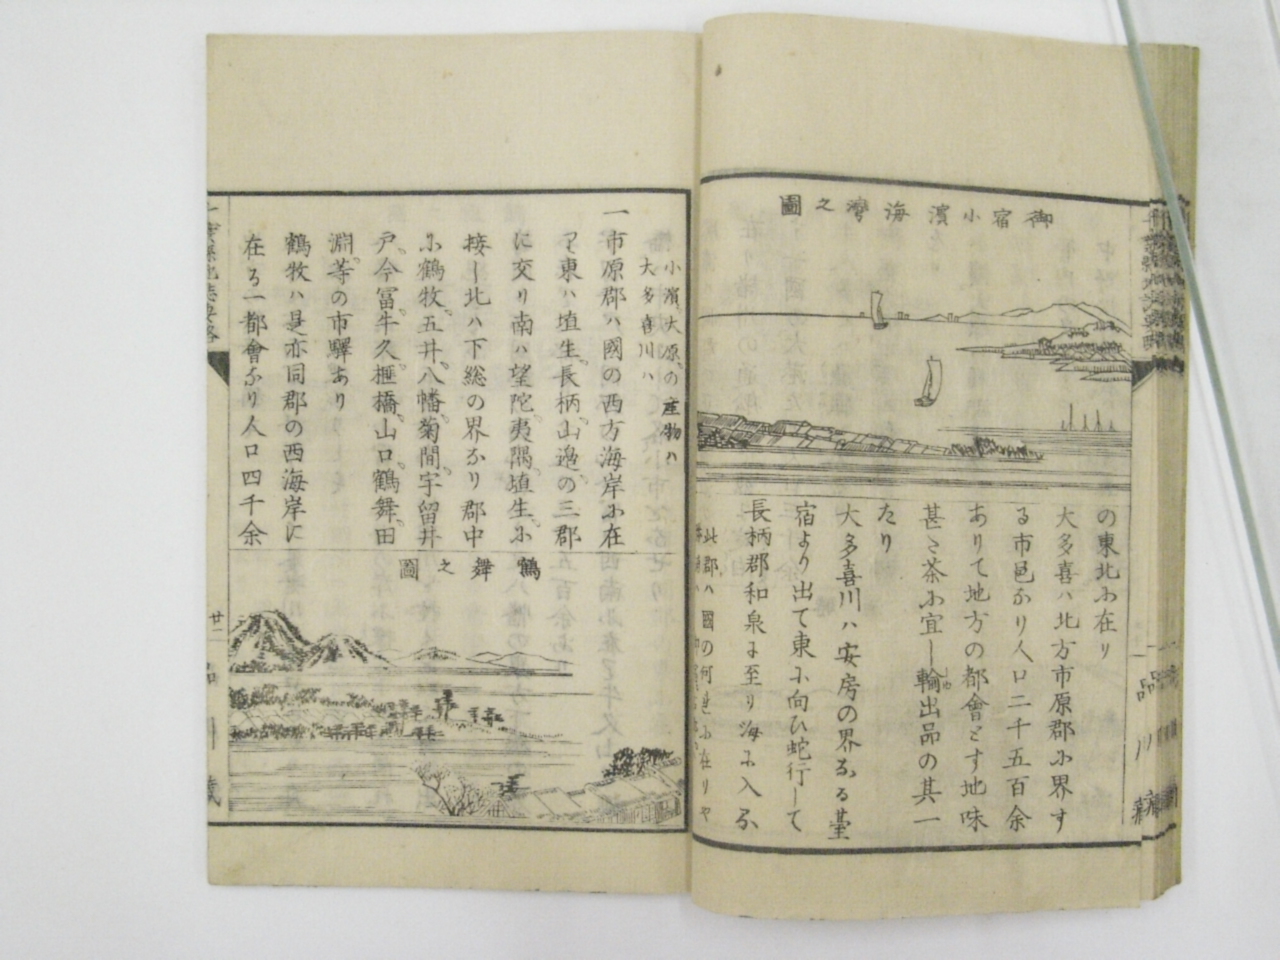 御宿小濱海灣之圖
の東北ふ在り
大多喜ハ北方市原郡ふ界す
る市邑なり人口二千五百余
ありて地方の都會とす地味
甚だ茶ふ宜し輸出品の其一
たり
大多喜川ハ安房の界なる䑓
宿より出て東ふ向ひ蛇行して
長柄郡和泉に至り海ふ入る
此郡ハ國の何邊ふ在りや
小濱大原の産物ハ
大多喜川ハ
一市原郡ハ國の西方海岸ふ在
て東ハ埴生長柄山邉の三郡
に交り南ハ望陀夷隅埴生ふ
接し北ハ下総の界なり郡中
ふ鶴牧五井八幡菊間宇留井
戸今冨牛久櫃橋山口鶴舞田
淵等の市驛あり
鶴牧ハ是亦同郡の西海岸に
在る一都會なり人口四千余
鶴舞之圖
廿二
品川藏